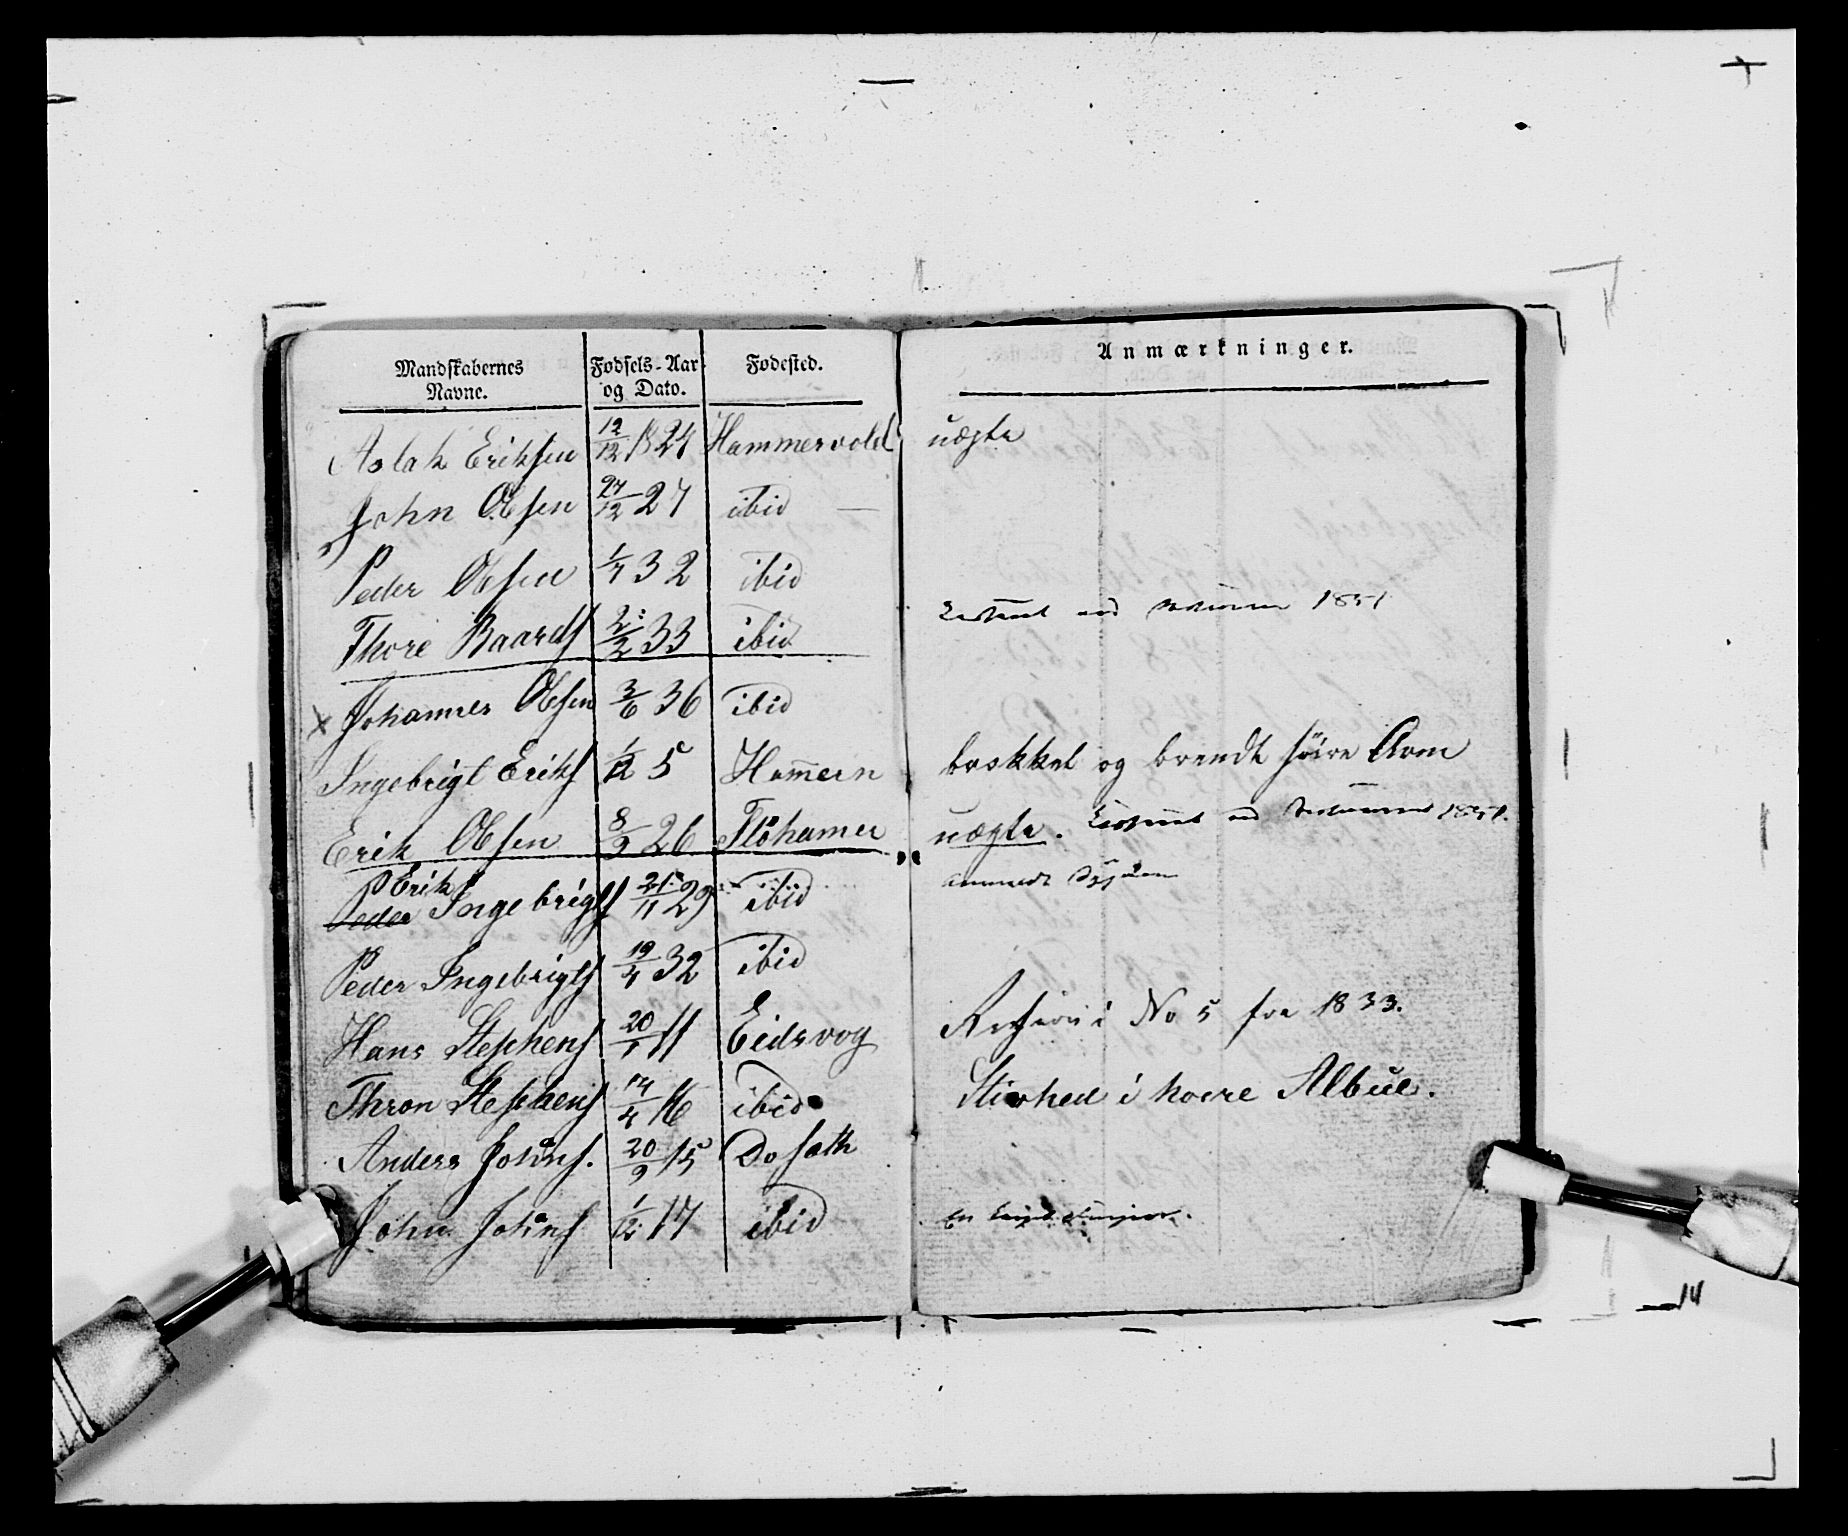 Mandskabernes Navne. Fødsels-Aar og Dato. Fødested. Anmærkninger.
Aslak Eriksen 12/12 1824 Hammervold uægte
John Olsen 27/12 27 ibid —
Peder Olsen 1/7 32 ibid
Thore Baards 2/2 33 ibid 1851
x Johannes Olsen 3/6 36 ibid
Ingebrigt Eriks 1/12 5 Ham̄ern brokket og brendt høire Arm
Erik Olsen 8/9 26 Flöhamer uægte. 1851.
Peder Erik Ingebrigts 21/11 29 ibid
Peder Ingebrigts 19/4 32 ibid
Hans Stephens 20/1 11 Eidsvog i No 5 for 1833.
Thron Stephens 14/4 16 ibid Stivhed i høire Albue.
Anders Johns. 20/9 15 Do
John Johns 1/12 17 ibid
14